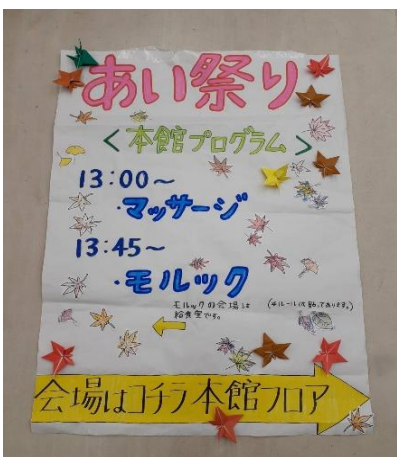 あい祭り
<本館プログラム>
13:00~
・マッサージ
13:45~
・モルック
モルックの会場は
給食室です。
会場はコチラ本館フロア